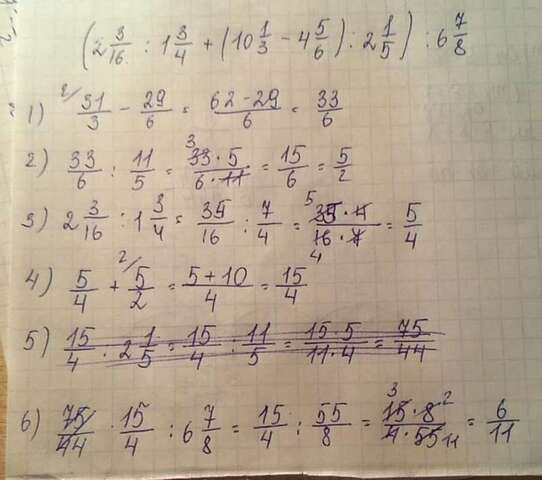 (2 3/16 : 1 3/4 + (10 1/3 − 4 5/6) : 2 1/5) : 6 7/8
1) 2/ 31/3 − 29/6 = (62 − 29)/6 = 33/6
2) 33/6 : 11/5 = 3 (33 · 5)/(6 · 11) = 15/6 = 5/2
3) 2 3/16 : 1 3/4 = 35/16 : 7/4 = 5 (35 · 4)/(16 · 7) 4 = 5/4
4) 5/4 + 2/ 5/2 = (5 + 10)/4 = 15/4
5) 15/4 · 2 1/5 = 15/4 : 11/5 = (15 · 5)/(11 · 4) = 75/44
6) 75/44 · 15/4 : 6 7/8 = 15/4 : 55/8 = 3 (15 · 8) 2/(4 · 55) 11 = 6/11